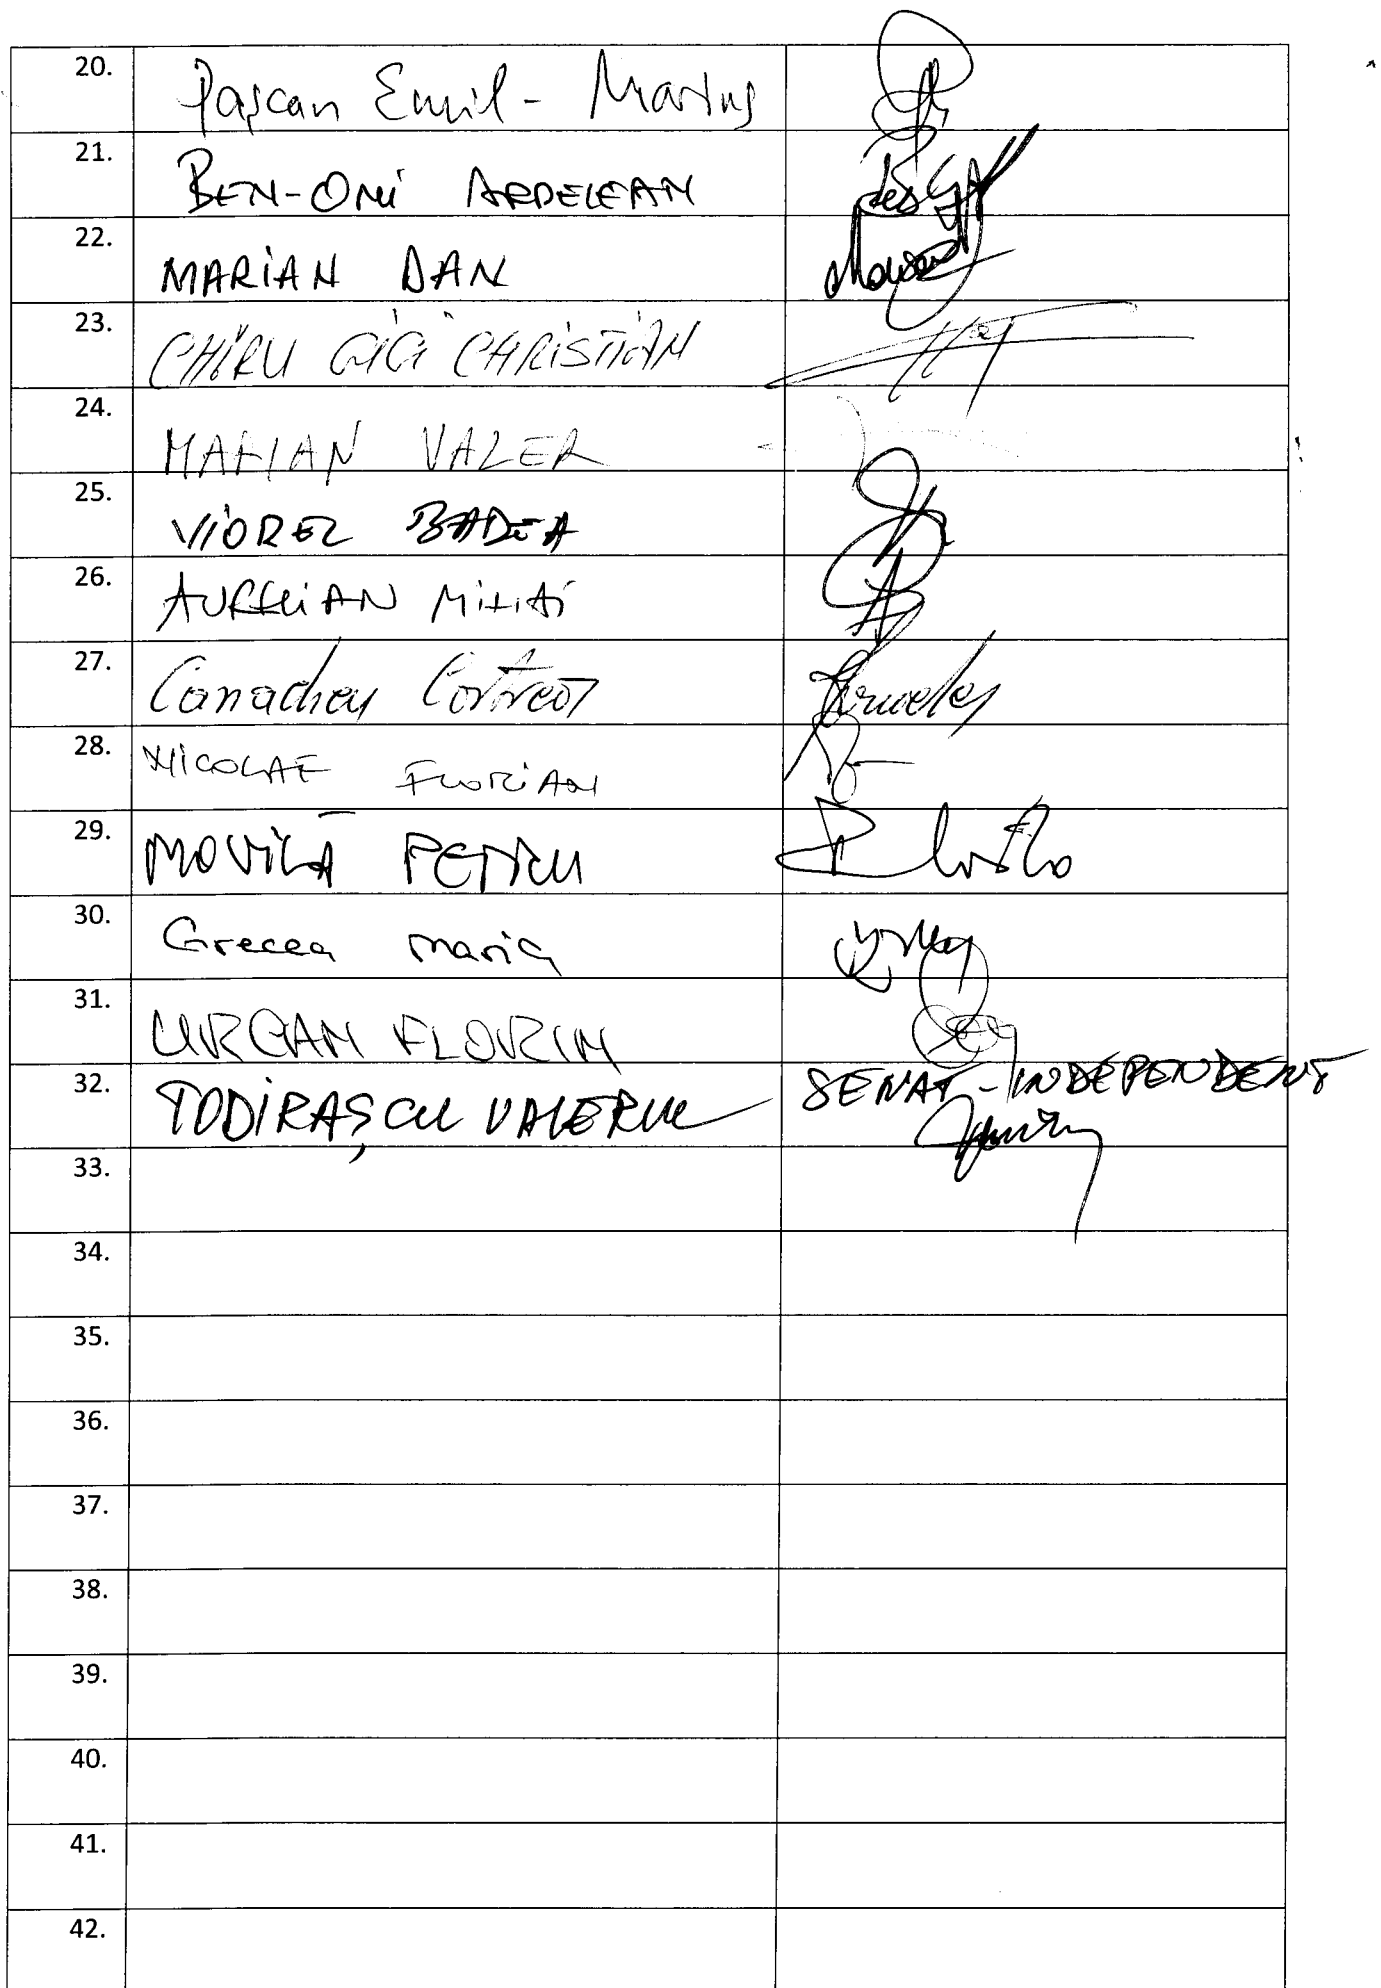 20. Pașcan Emil - Marius
21. BEN-ONI ARDELEAN
22. MARIAN DAN
23. CHIRU GIGI CHRISTIAN
24. MARIAN VALER
25. VIOREL BADEA
26. AURELIAN MIHAI
27. Canacheu
28. NICOLAE FLORIAN
29. MOVILĂ PETRU
30. Grecea Maria
31. URCAN FLORIN
32. TODIRAȘCU VALERIU SENAT - INDEPENDENT
33.
34.
35.
36.
37.
38.
39.
40.
41.
42.